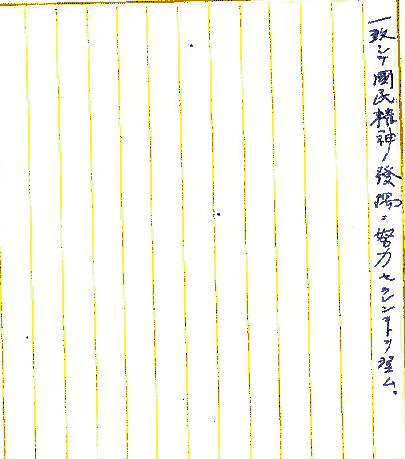 一致シテ國民精神ノ發揚ニ努力セラレンコトヲ望ム。